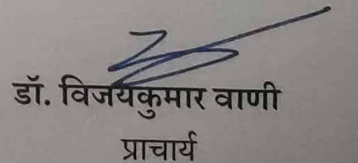 डॉ. विजयकुमार वाणी
प्राचार्य